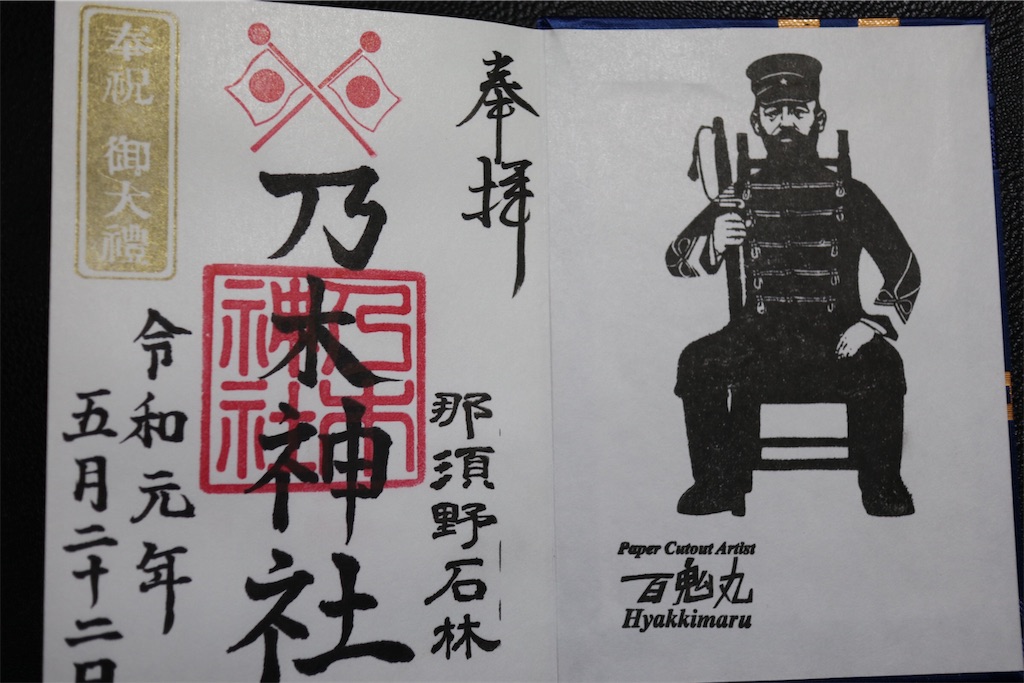 奉拝
那須野石林
乃木神社
乃木神社
奉祝 御大禮
令和元年
五月二十二日
Paper Cutout Artist
百鬼丸
Hyakkimaru